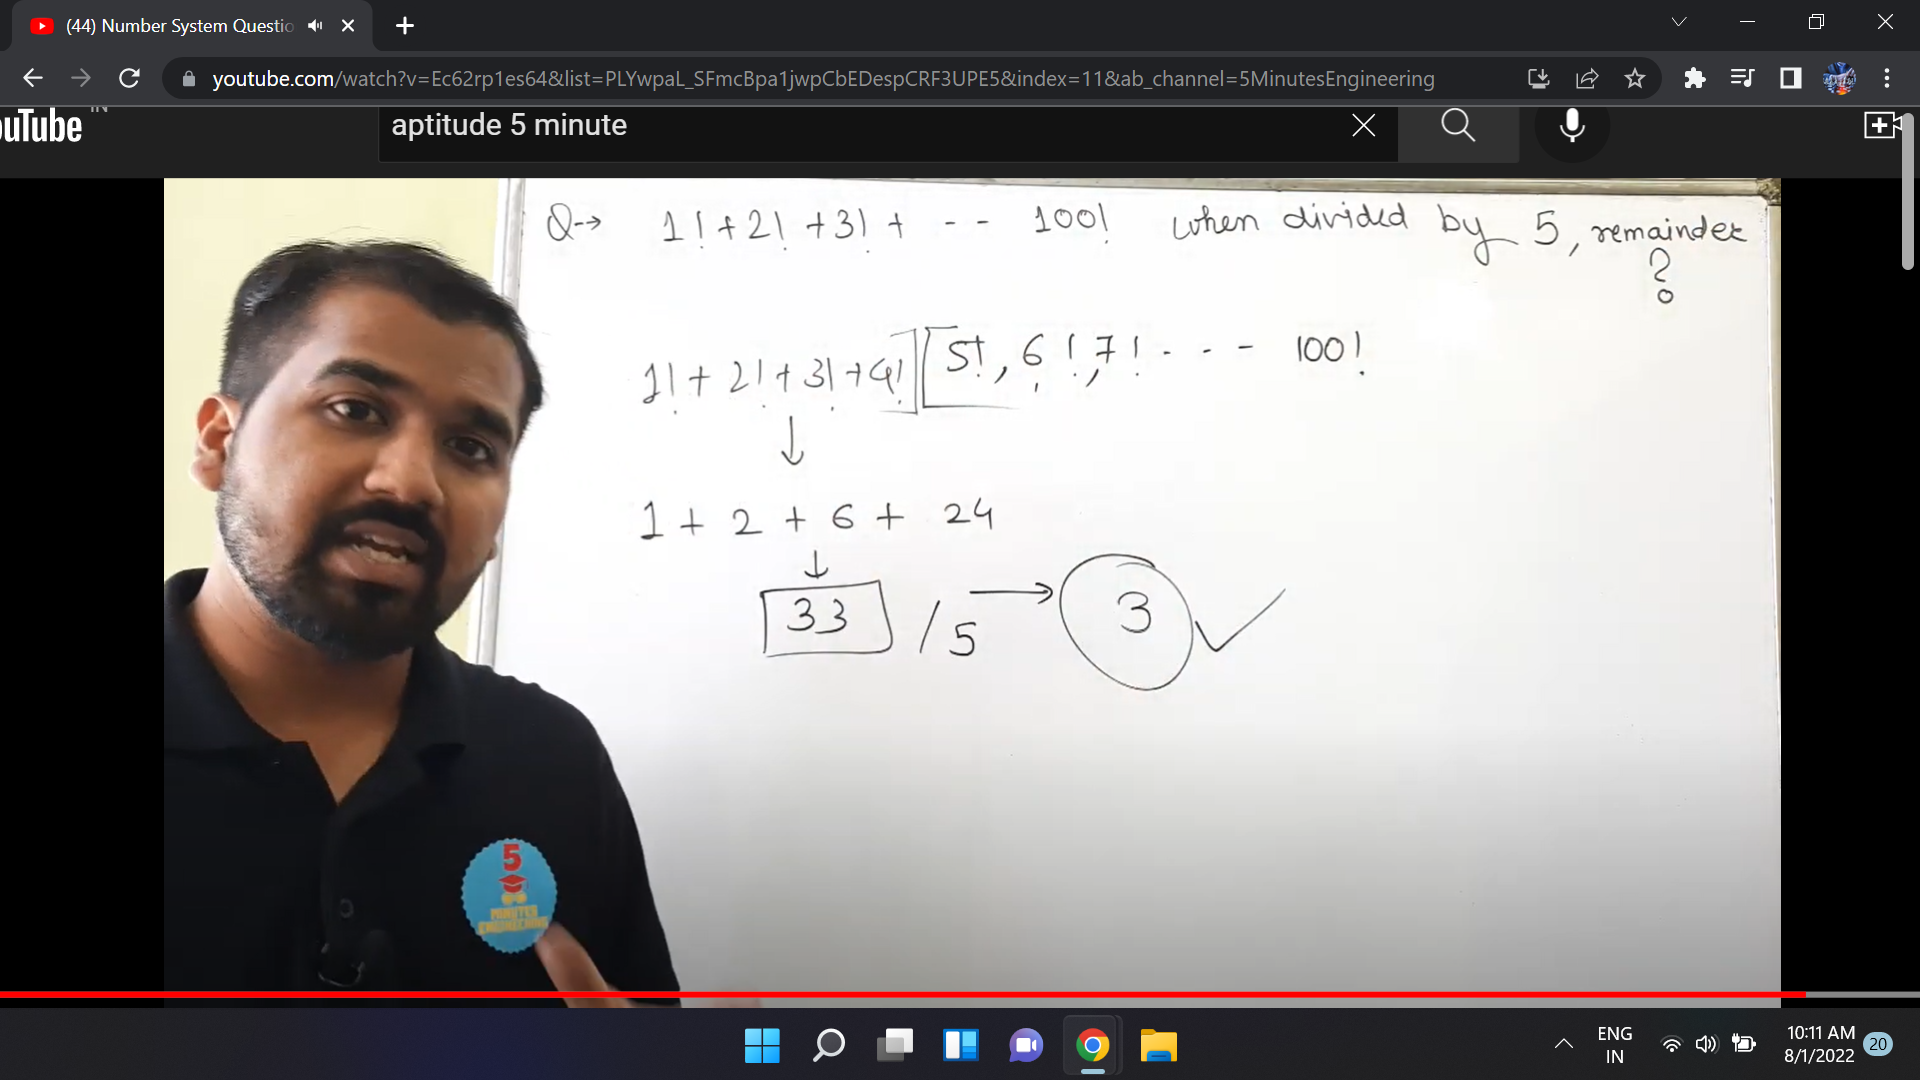 (44) Number System Questio
youtube.com/watch?v=Ec62rp1es64&list=PLYwpaL_SFmcBpa1jwpCbEDespCRF3UPE5&index=11&ab_channel=5MinutesEngineering
uTube IN
aptitude 5 minute
Q→ 1!+2!+3!+ -- 100! when divided by 5, remainder
?
1!+2!+3!+4! 5!, 6!, 7! - - - 100!
↓
1 + 2 + 6 + 24
↓
33 /5 → 3 ✓
5
MINUTES
ENGINEERING
ENG
IN
10:11 AM
8/1/2022
20